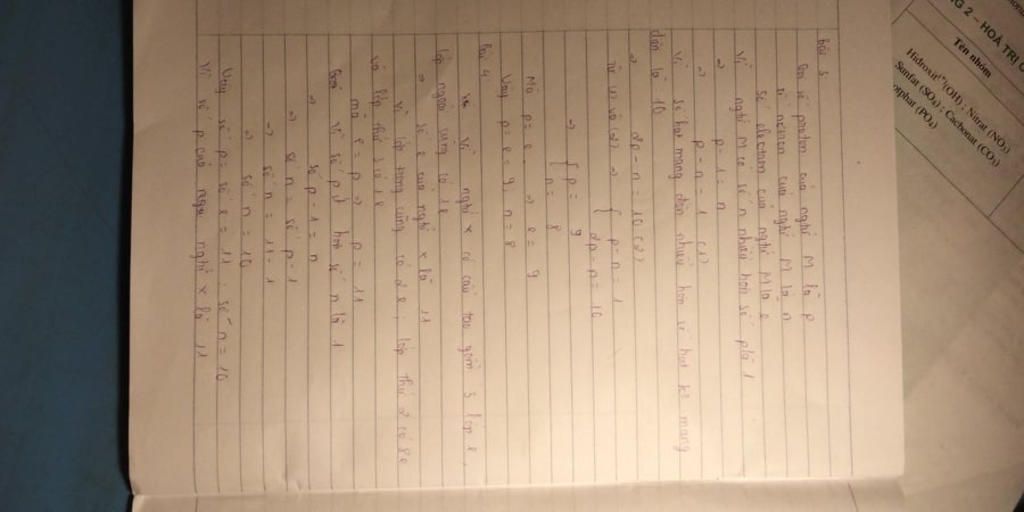 Bài 3:
Gọi số proton của ngtử M là p
số nơtron của ngtử M là n
số electron của ngtử M là e
Vì ngtử M có số n nhiều hơn số p là 1
=> p - 1 = n
=> p - n = 1 (1)
Vì số hạt mang điện nhiều hơn số hạt k° mang
điện là 10
=> 2p - n = 10 (2)
Từ (1) và (2) => { p - n = 1
2p - n = 10
=> { p = 9
n = 8
Mà p = e => e = 9
Vậy p = e = 9, n = 8
Bài 4
Vì ngtử X có cấu tạo gồm 3 lớp e,
lớp ngoài cùng có 1e
=> số e của ngtử X là 11
Vì lớp trong cùng có 2e; lớp thứ 2 có 8e
và lớp thứ 3 có 1e
mà e = p => p = 11
Vì số p hơn số n là 1
=> số p - 1 = n
=> số n = số p - 1
=> số n = 11 - 1
=> số n = 10
Vậy số p = số e = 11; số n = 10
Vì số p của ngtử X là 11
G 2 - HOÁ TRỊ C
Tên nhóm
Hidroxit(*)(OH); Nitrat (NO₃)
Sunfat (SO₄); Cacbonat (CO₃)
orphat (PO₄)